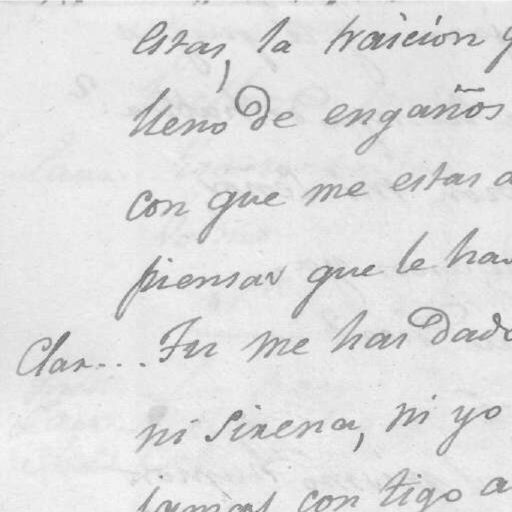 estas, la traicion
lleno de engaños
con que me estas
piensas que le has
Clar... Tu me has dado
ni sirena, ni yo
jamas contigo a